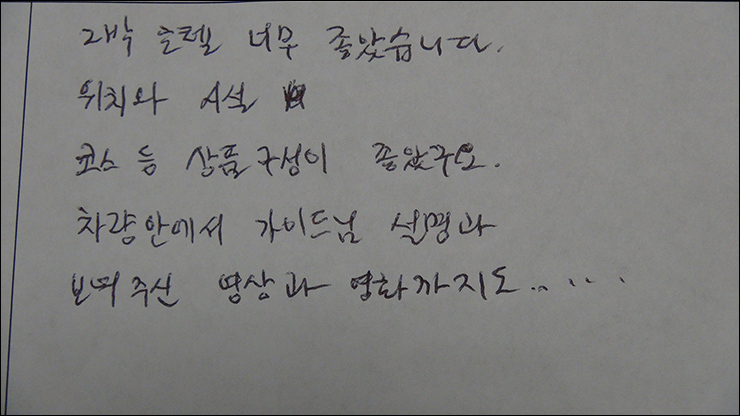 2박 호텔 너무 좋았습니다.
위치와 시설
코스 등 상품구성이 좋았구요.
차량안에서 가이드님 설명과
보여주신 영상과 영화까지도.......